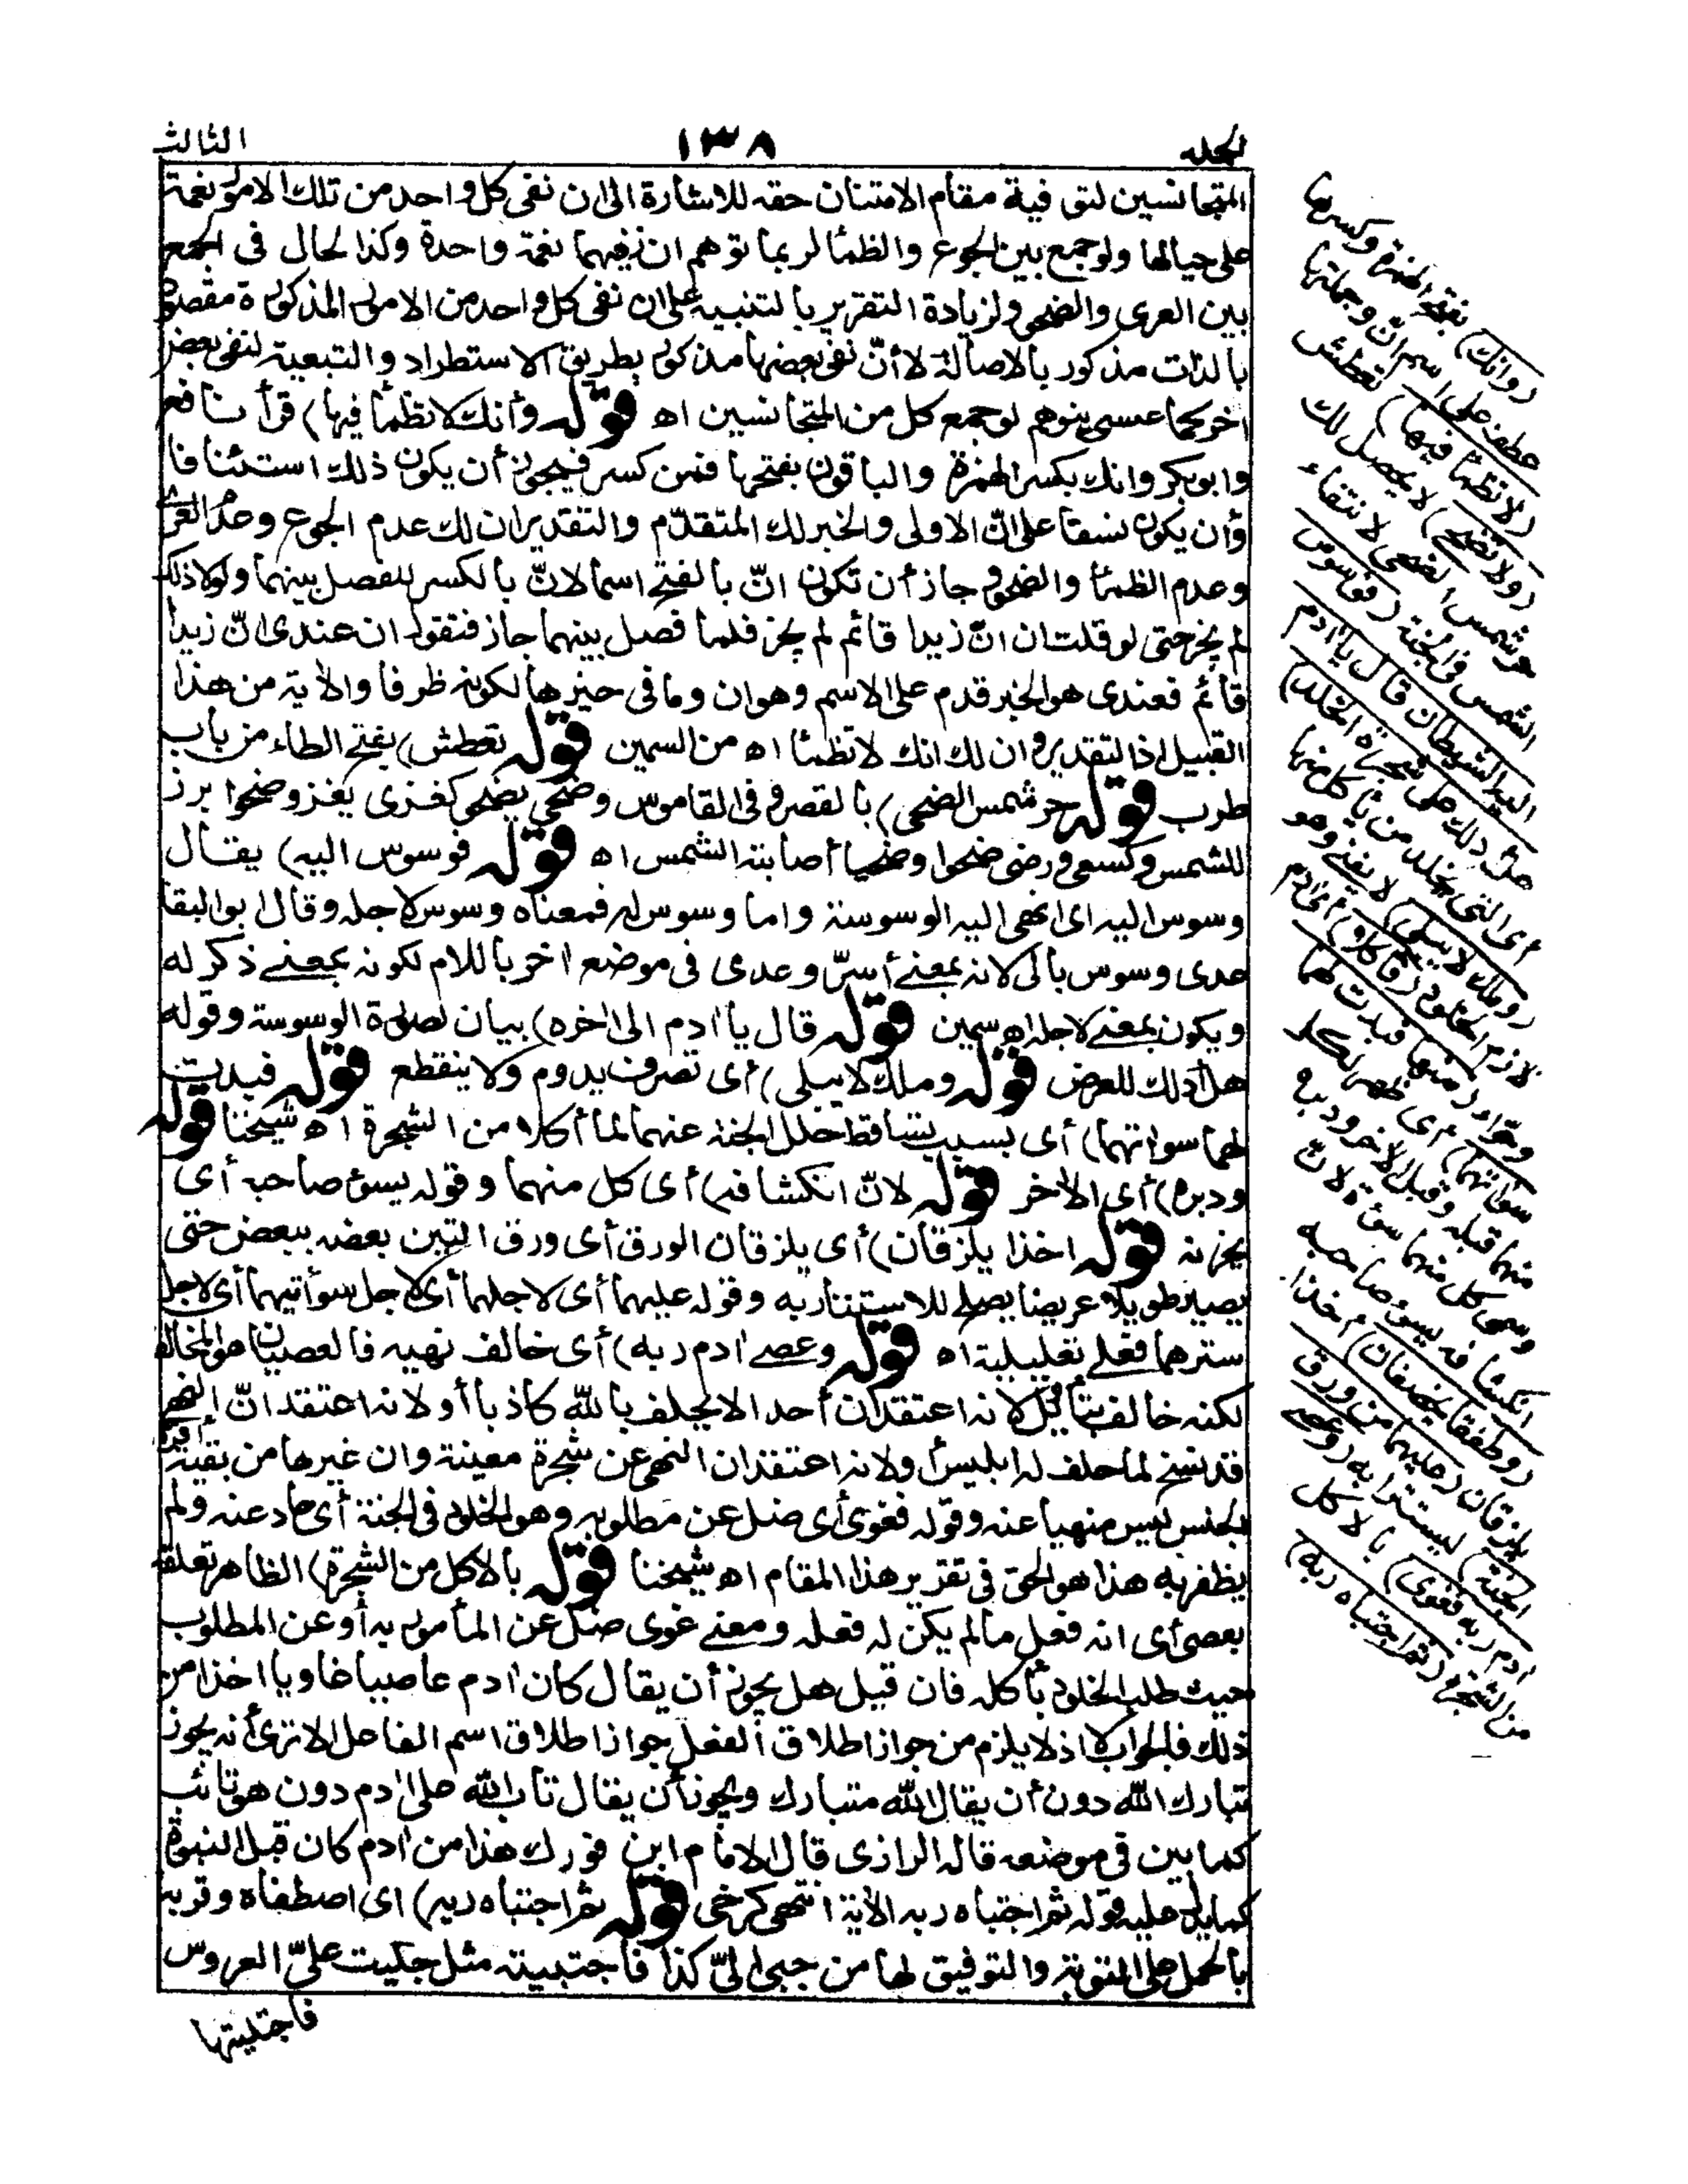 الجلد
١٣٨
الثالث
المتجانسين لتوفية مقام الامتنان حقه للاشارة الى ان نفى كل واحد من تلك الامور نعمة
على حيالها ولو جمع بين الجوع والظمأ لربما توهم ان نفيهما نعمة واحدة وكذا الحال فى الجمع
بين العرى والضحى ولزيادة التقرير بالتنبيه على ان نفى كل واحد من الامور المذكورة مقصود
بالذات مذكور بالاصالة لا أنّ نفى بعضها مذكور بطريق الاستطراد والتبعية لنفى بعض
اخر كما عسى يتوهم لو جمع كل من المتجانسين اه قوله وأنك لا تظمأ فيها) قرأ نافع
وابو بكر وانك بكسر الهمزة والباقون بفتحها فمن كسر فيجوز أن يكون ذلك استئنافا
وأن يكون نسقا على انّ الاولى والخبر لك المتقدّم والتقدير ان لك عدم الجوع وعدم العرى
وعدم الظمأ والضحو وجاز أن تكون انّ بالفتح اسما لانّ بالكسر للفصل بينهما ولولا ذلك
لم يجز حتى لو قلت ان انّ زيدا قائم لم يجز فلما فصل بينهما جاز فتقول ان عندى انّ زيدا
قائم فعندى هو الخبر قدم على الاسم وهو ان وما فى حيزها لكونه ظرفا والاٰية من هذا
القبيل اذ التقدير وان لك انك لا تظمأ اه من السمين قوله تعطش) بفتح الطاء من باب
طرب قوله حر شمس الضحى) بالقصر وفى القاموس وضحى يضحى كغزى يغزو ضحوا برز
للشمس وكسعى ورضى ضحوا وضحيا أصابته الشمس اه قوله فوسوس اليه) يقال
وسوس اليه اى انهى اليه الوسوسة واما وسوس له فمعناه وسوس لاجله وقال ابو البقا
عدى وسوس بالى لانه بمعنے أسرّ وعدى فى موضع اخر باللام لكونه بمعنے ذكر له
ويكون بمعنے لاجله اه سمين قوله قال ياٰادم الى اٰخره) بيان لصورة الوسوسة وقوله
هل أدلك للعرض قوله وملك لا يبلى) أى تصرف يدوم ولا ينقطع قوله فبدت
لهما سواٰتهما) أى بسبب تساقط حلل الجنة عنهما لما أكلا من الشجرة اه شيخنا قوله
ودبره) أى الاٰخر قوله لانّ انكشافه) أى كل منهما وقوله يسوء صاحبه أى
يحزنه قوله اخذا يلزقان) أى يلزقان الورق أى ورق التين بعضه ببعض حتى
يصير طويلا عريضا يصلح للاستتار به وقوله عليهما أى لاجلهما أى لاجل سوأتيهما أى لاجل
سترهما فعلى تعليلية اه قوله وعصے اٰدم ربه) أى خالف نهيه فالعصيان هو المخالفة
لكنه خالف بتأويل لانه اعتقد أن أحدا لا يحلف بالله كاذبا أو لانه اعتقد انّ النهى
قد نسخ لما حلف له ابليس أو لانه اعتقد ان النهى عن شجرة معينة وان غيرها من بقية أفراد
الجنس ليس منهيا عنه وقوله فغوى أى ضل عن مطلوبه وهو الخلود فى الجنة أى حاد عنه ولم
يظفر به هذا هو الحق فى تقرير هذا المقام اه شيخنا قوله بالاكل من الشجرة) الظاهر تعلقه
بعصى أى انه فعل ما لم يكن له فعله ومعنے غوى ضل عن المأمور به أو عن المطلوب
حيث طلب الخلود بأكله فان قيل هل يجوز أن يقال كان اٰدم عاصيا غاويا اخذا من
ذلك فالجواب لا اذ لا يلزم من جواز اطلاق الفعل جواز اطلاق اسم الفاعل الا ترى أنه يجوز
تبارك الله دون أن يقال الله متبارك ويجوز أن يقال تاب الله على اٰدم دون هو تائب
كما بين فى موضعه قاله الرازى قال الامام ابن فورك هذا من اٰدم كان قبل النبوة
كما يدل عليه قوله ثم اجتباه ربه الاٰية انتهى كرخى قوله ثم اجتباه ربه) اى اصطفاه وقربه
بالحمل على التوبة والتوفيق لها من جبى الىّ كذا فاجتبيته مثل جليت علىّ العروس
فاجتليتها
(وانك) بفتح الهمزة وكسرها
عطف على اسم انّ وجملتها
(لا تظمأ فيها) تعطش
(ولا تضحى) لا يحصل لك
حر شمس الضحى لانتفاء
الشمس فى الجنة (فوسوس
اليه الشيطان قال ياٰادم
هل أدلك على شجرة الخلد)
أى التى يخلد من يأكل منها
(وملك لا يبلى) لا يفنى وهو
لازم الخلود (فاكلا) أى اٰدم
وحوّاء (منها فبدت لهما
سواٰتهما) أى ظهر لكل
منهما قبله وقبل الاٰخر ودبره
وسمى كل منهما سوءة لانّ
انكشافه يسوء صاحبه
(وطفقا يخصفان) اخذا
يلزقان (عليهما من ورق
الجنة) ليستترا به (وعصى
اٰدم ربه فغوى) بالاكل
من الشجرة (ثم اجتباه ربه)